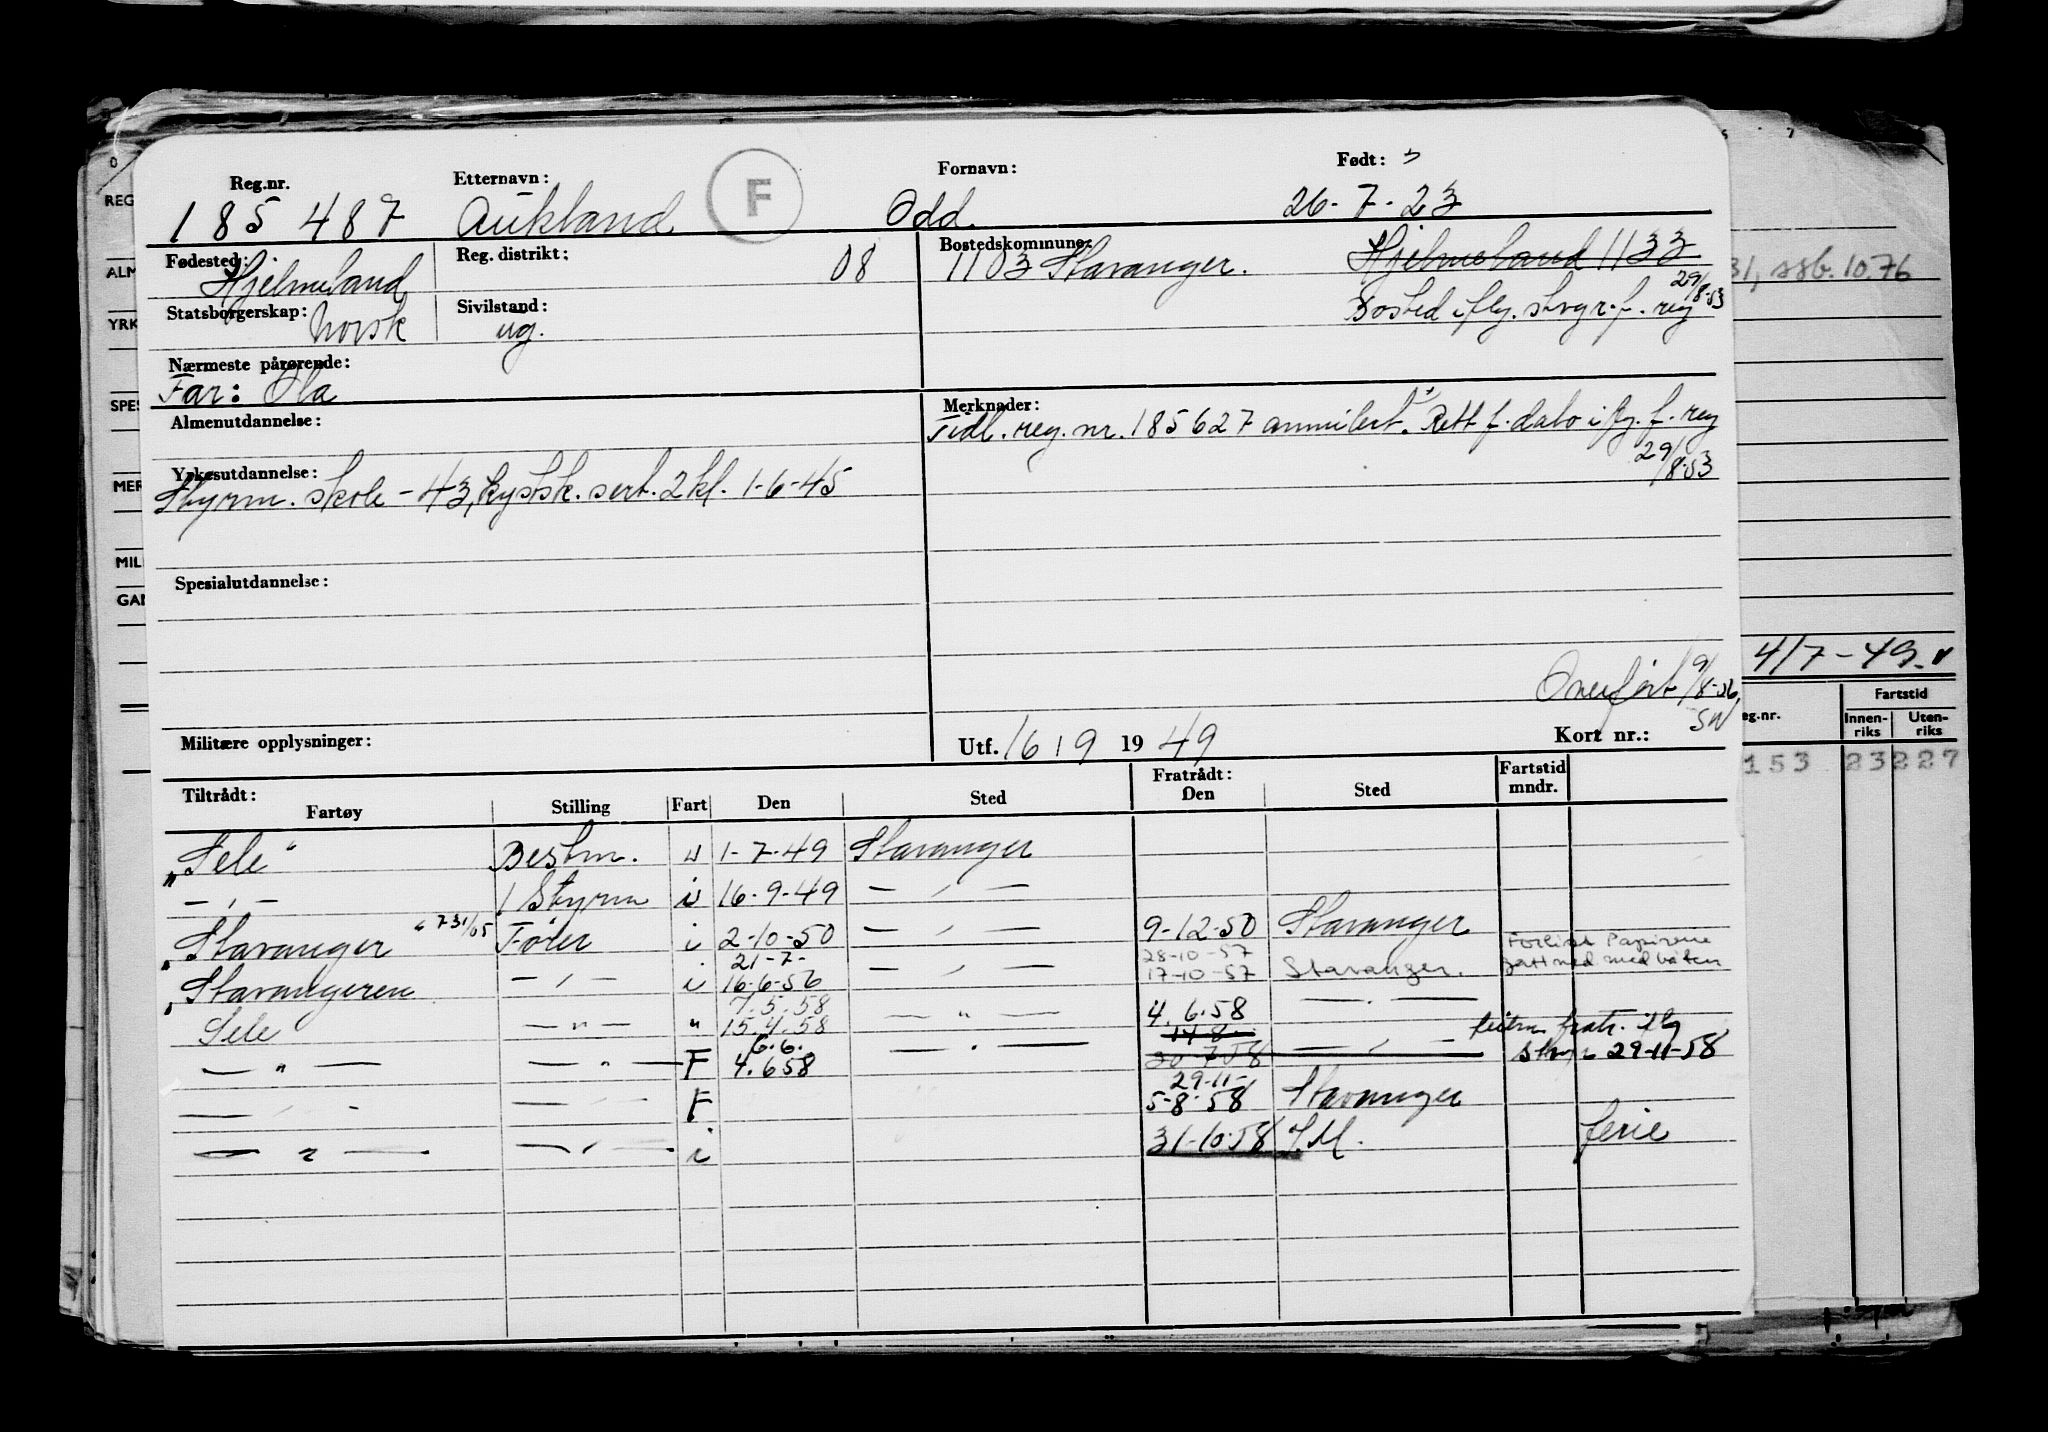 Reg.nr. Etternavn: F Fornavn: Født:
185 487 Aukland Odd. 26-7-23
Fødested: Hjelmeland Reg. distrikt: 08 Bostedskommune: 1103 Stavanger. Hjelmeland 1133
29/8-53
Statsborgerskap: Norsk Sivilstand: ug. Bosted iflg. stvgr. f. reg
Nærmeste pårørende:
Far: Ola
Almenutdannelse: Merknader:
Tidl. reg. nr. 185627 annulert. Rett f. dato iflg. f. reg
29/8-53
Yrkesutdannelse:
Styrm. skole -43, kystsk. sert. 2kl. 1-6-45
Spesialutdannelse:
Overført 9/8-56
SW
Militære opplysninger: Utf. 16 / 9 19 49 Kort nr.:
Tiltrådt: Fratrådt: Fartstid
Fartøy Stilling Fart Den Sted Den Sted mndr.
"Sele" Bestm. u 1-7-49 Stavanger
-,- 1 Styrm i 16-9-49 -,-
"Stavanger" 731/05 Fører i 2-10-50 -,- 9-12-50 Stavanger
21-7- 28-10-57 Forlist Papirene
"Stavangeren -,- i 16-6-56 -,- 17-10-57 Stavanger. gått ned med båten
7.5.58
Sele -"- " 15.4.58 -"- 4.6.58 -.-
6.6. 14-8- fratr. iflg
-"- -"- F 4.658 -.- 30-7-58 -,- 29-11-58
29-11-
-,- -,- F 5-8-58 Stavanger
-"- -,- i 31-10-58 I.M. ferie
REG
ALM
YRK
SPES
MER
MILI
GAN
0
7
31, 10.76
4/7-49.
eg.nr. Fartstid
Innen-riks Uten-riks
153 23 227